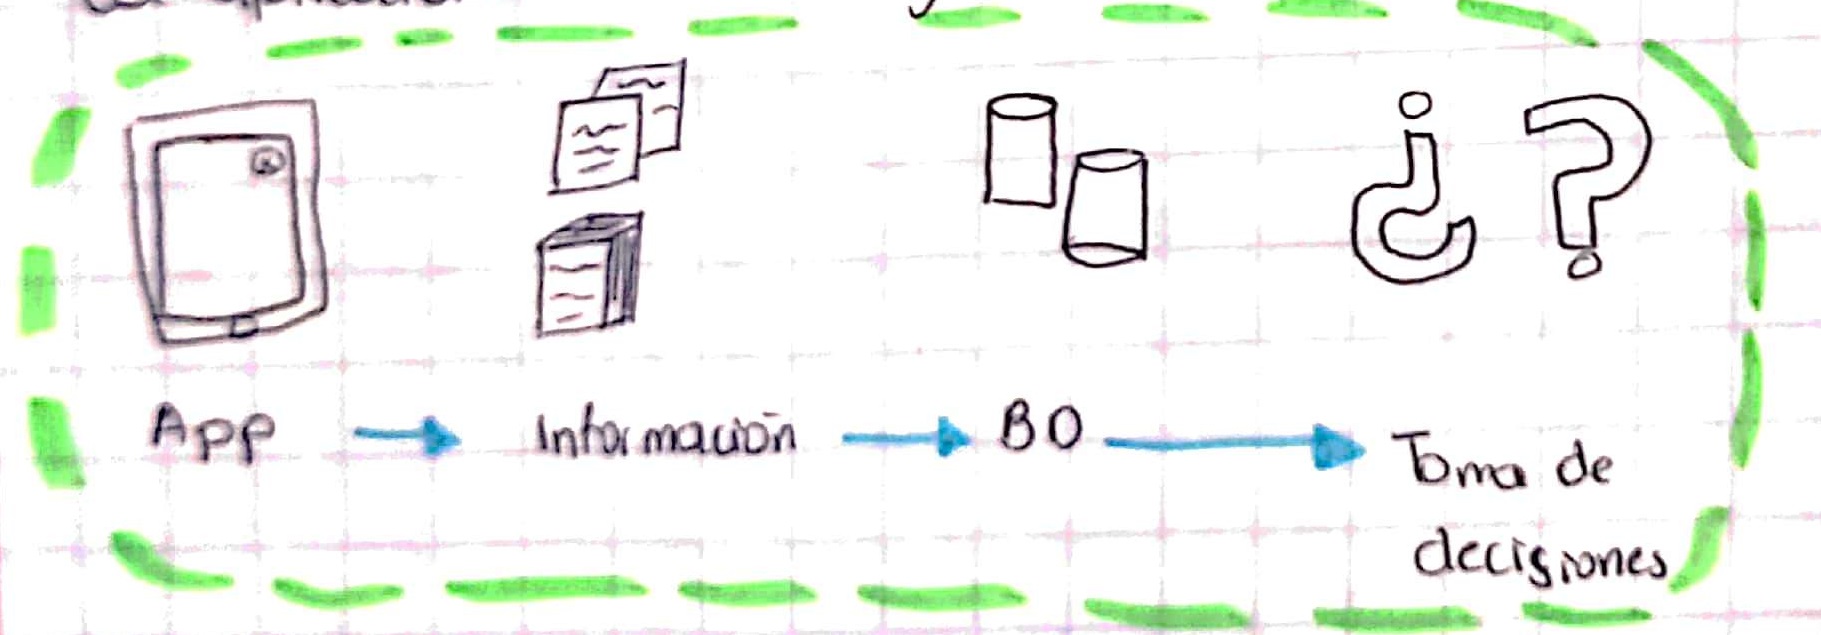 App → Información → BO → Toma de
decisiones
¿ ?